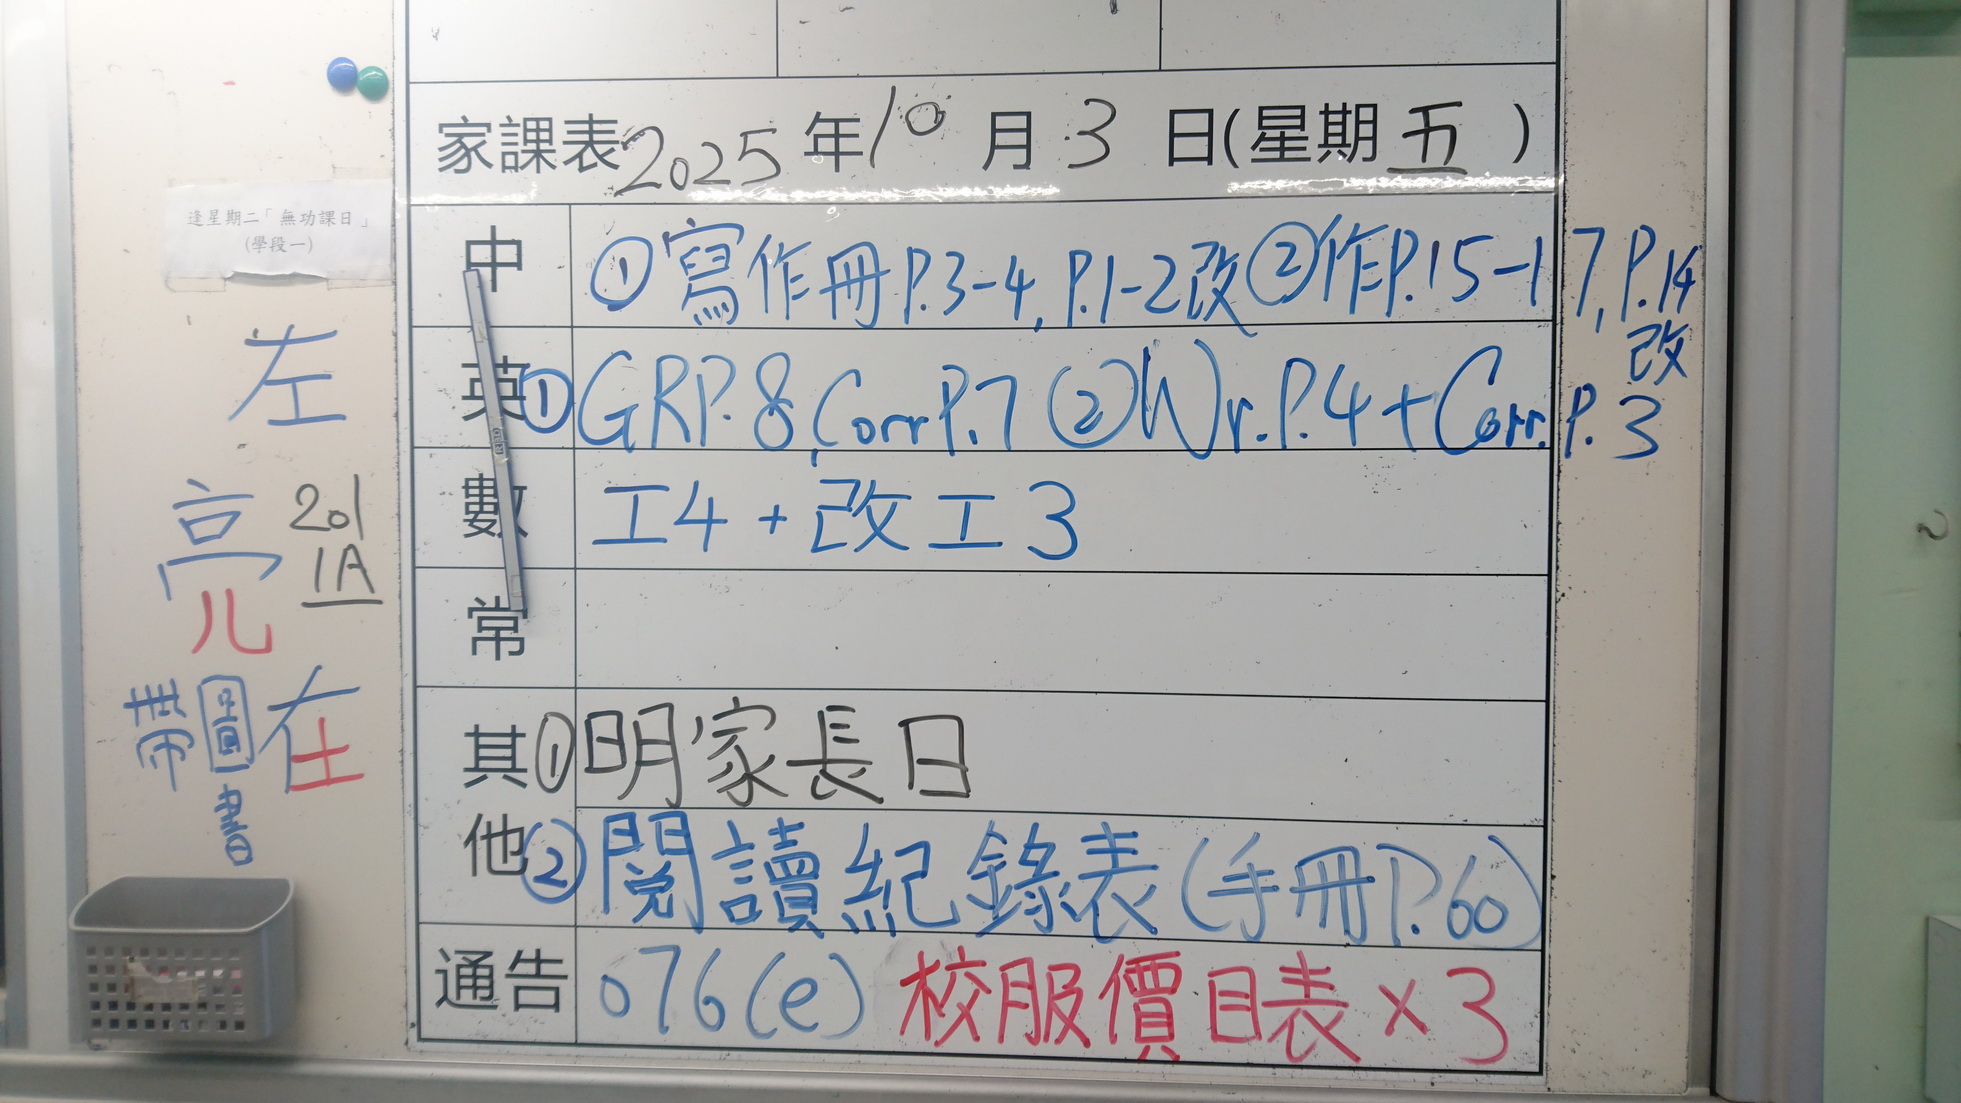 家課表 2025 年 10 月 3 日(星期 五 )
逢星期二「無功課日」
(學段一)
中 ①寫作冊P.3-4, P.1-2改 ②作P.15-17, P.14
改
英 ①GRP.8, Corr P.7 ②Wr.P.4+Corr.P.3
數 工4+改工3
常
其他 ①明家長日
②閱讀紀錄表(手冊P.60)
通告 076(e) 校服價目表×3
左
亮
201
1A
在
帶圖書